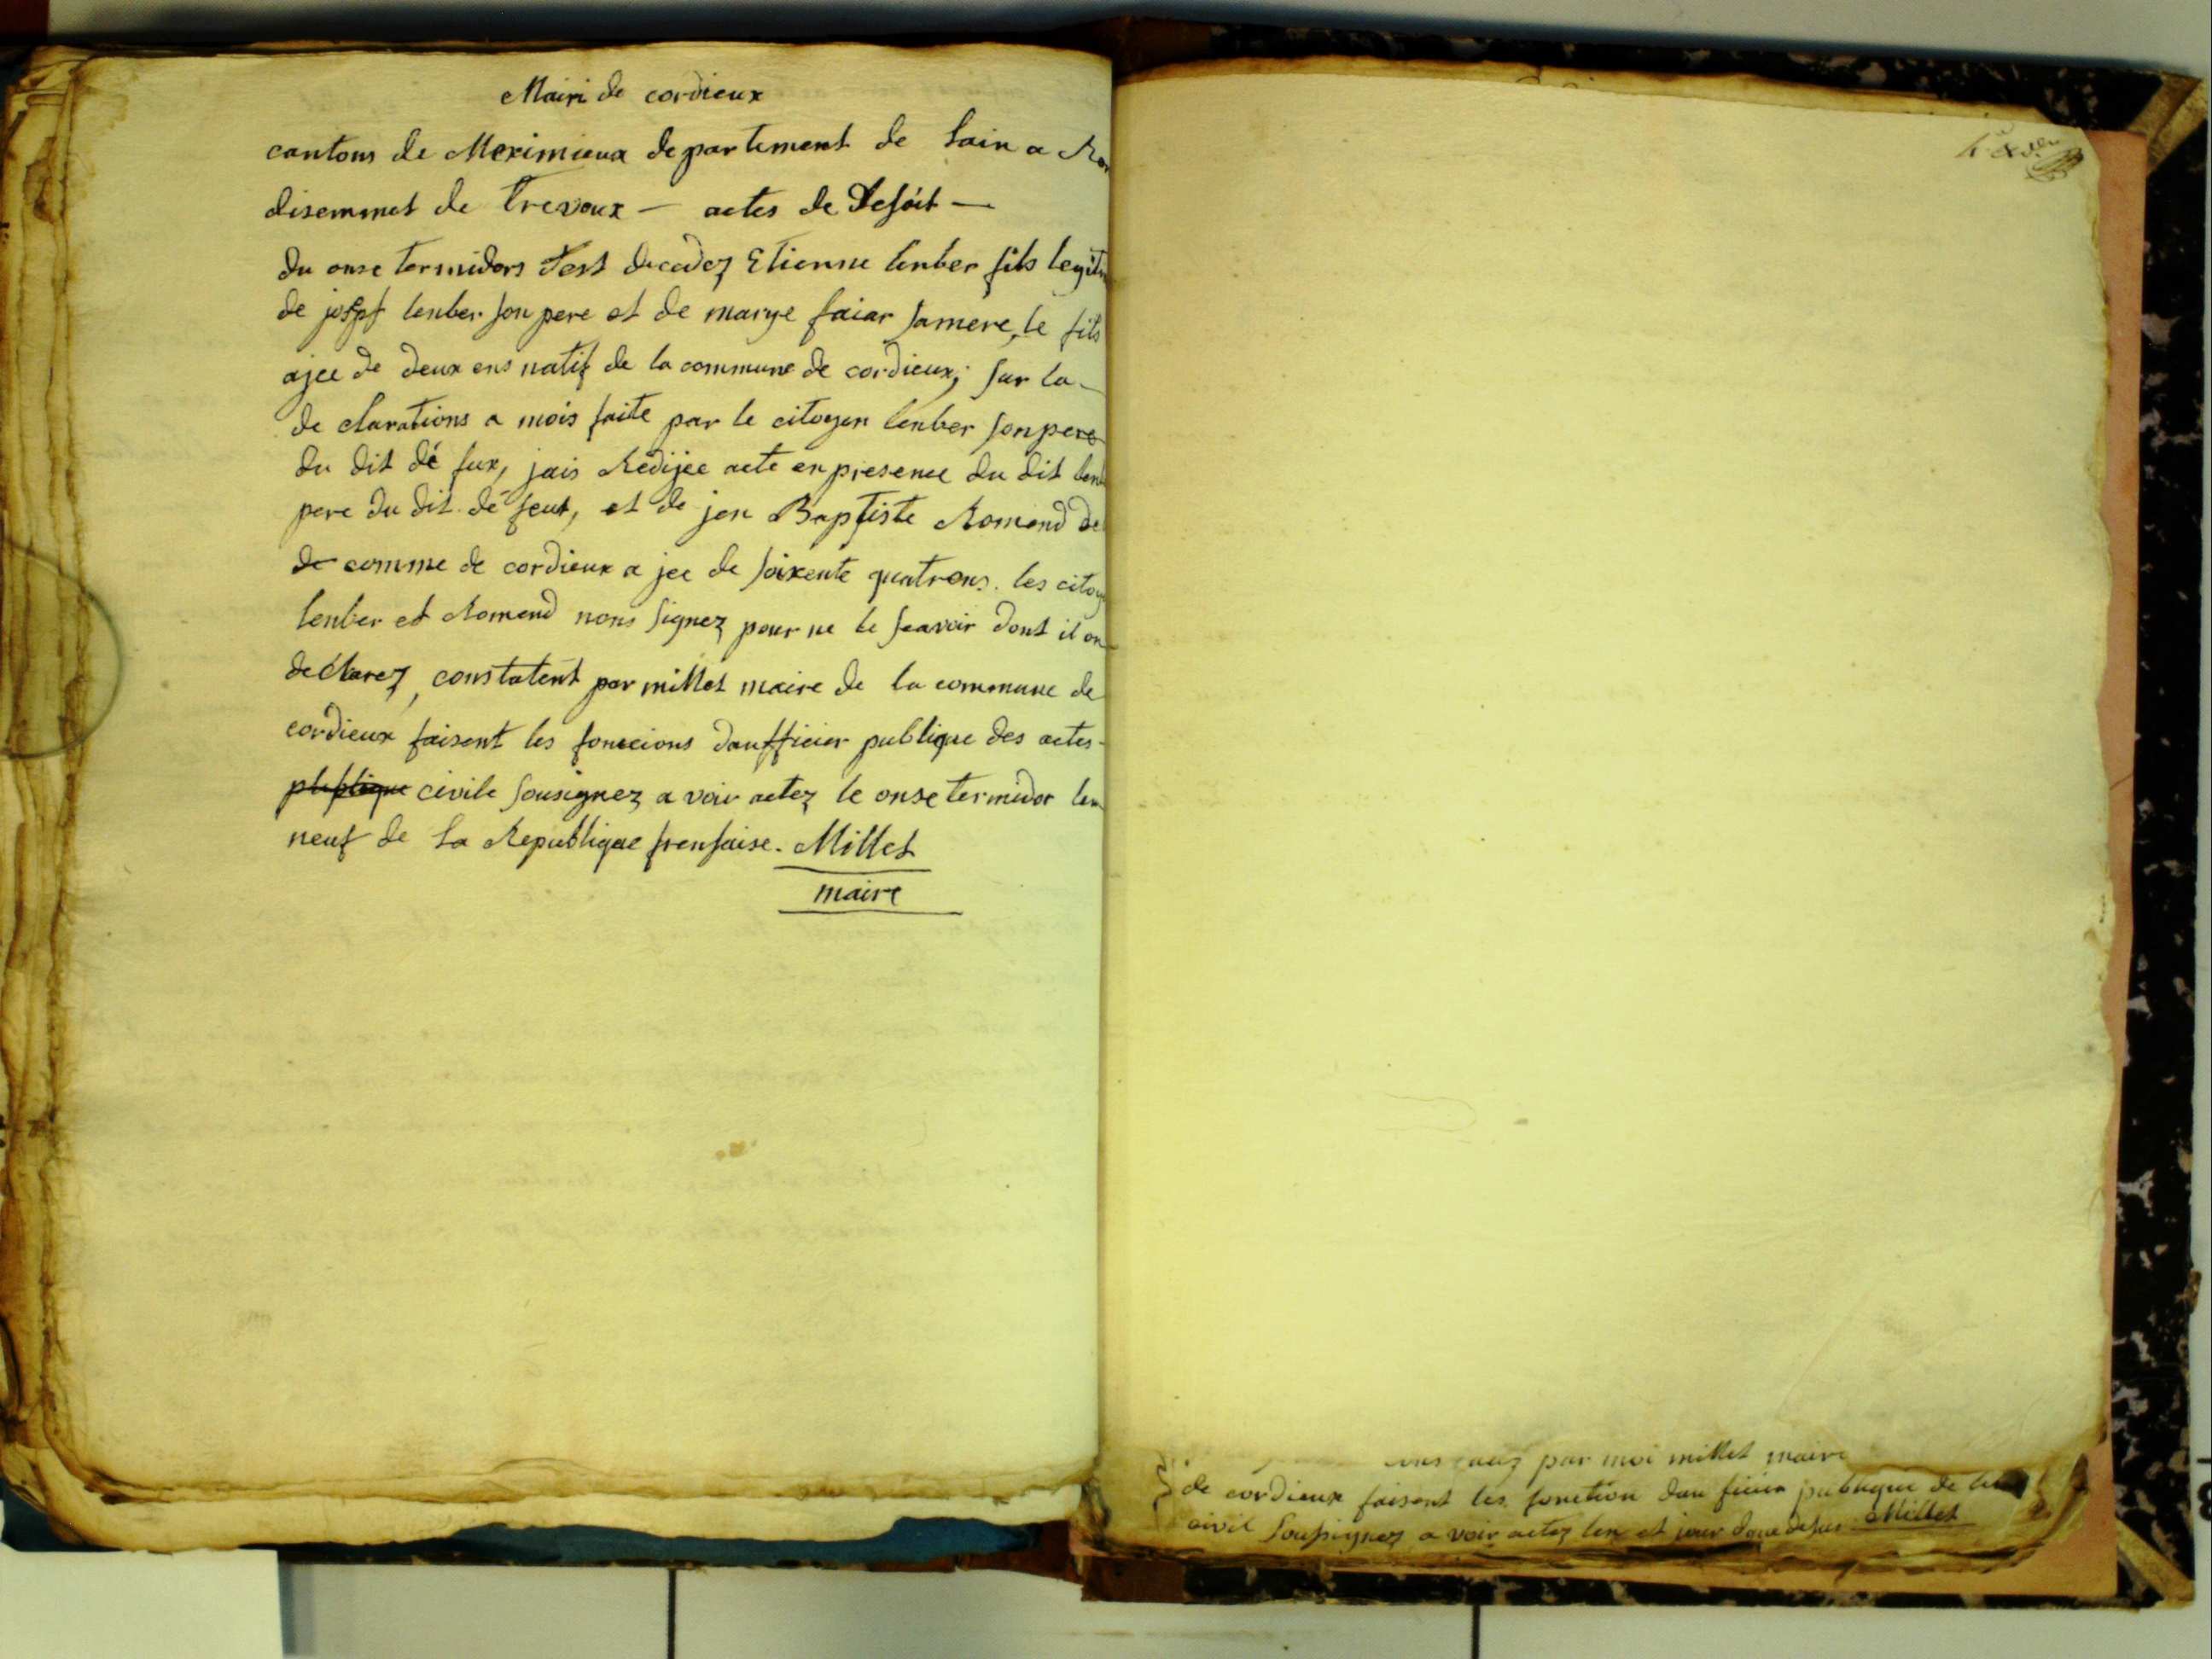 Mairi de cordieux
cantons de Meximieux departement de Lain a Ron
disemmet de Trevoux — actes de Desait —
du onse termidors s'est decedez Etienne lenber fils legitm
de josepf lenber son pere et de marye faiar samere, le fils
ajee de deux ens natif de la commune de cordieux; sur la
de clarations a mois faite par le citoyen lenber son pere
du dit dé fux, jais Redijee acte en presence du dit lenb
pere du dit dé feut, et de jen Baptiste Romand de
de comme de cordieux a jee de soixente quatrens. les citoy
lenber et Romend nons signez pour ne le scavoir dont il on
declarez, constatent par millet maire de la commune de
cordieux faisent les foncions daufficier publique des actes
civile sousignez a voir actez le onse termidor len
neuf de La Republique frensaise. Millet
maire
par moi millet maire
de cordieux faisent les fonction dau ficier publique de
civil Soussignez a voir actez len et jour que desus Millet